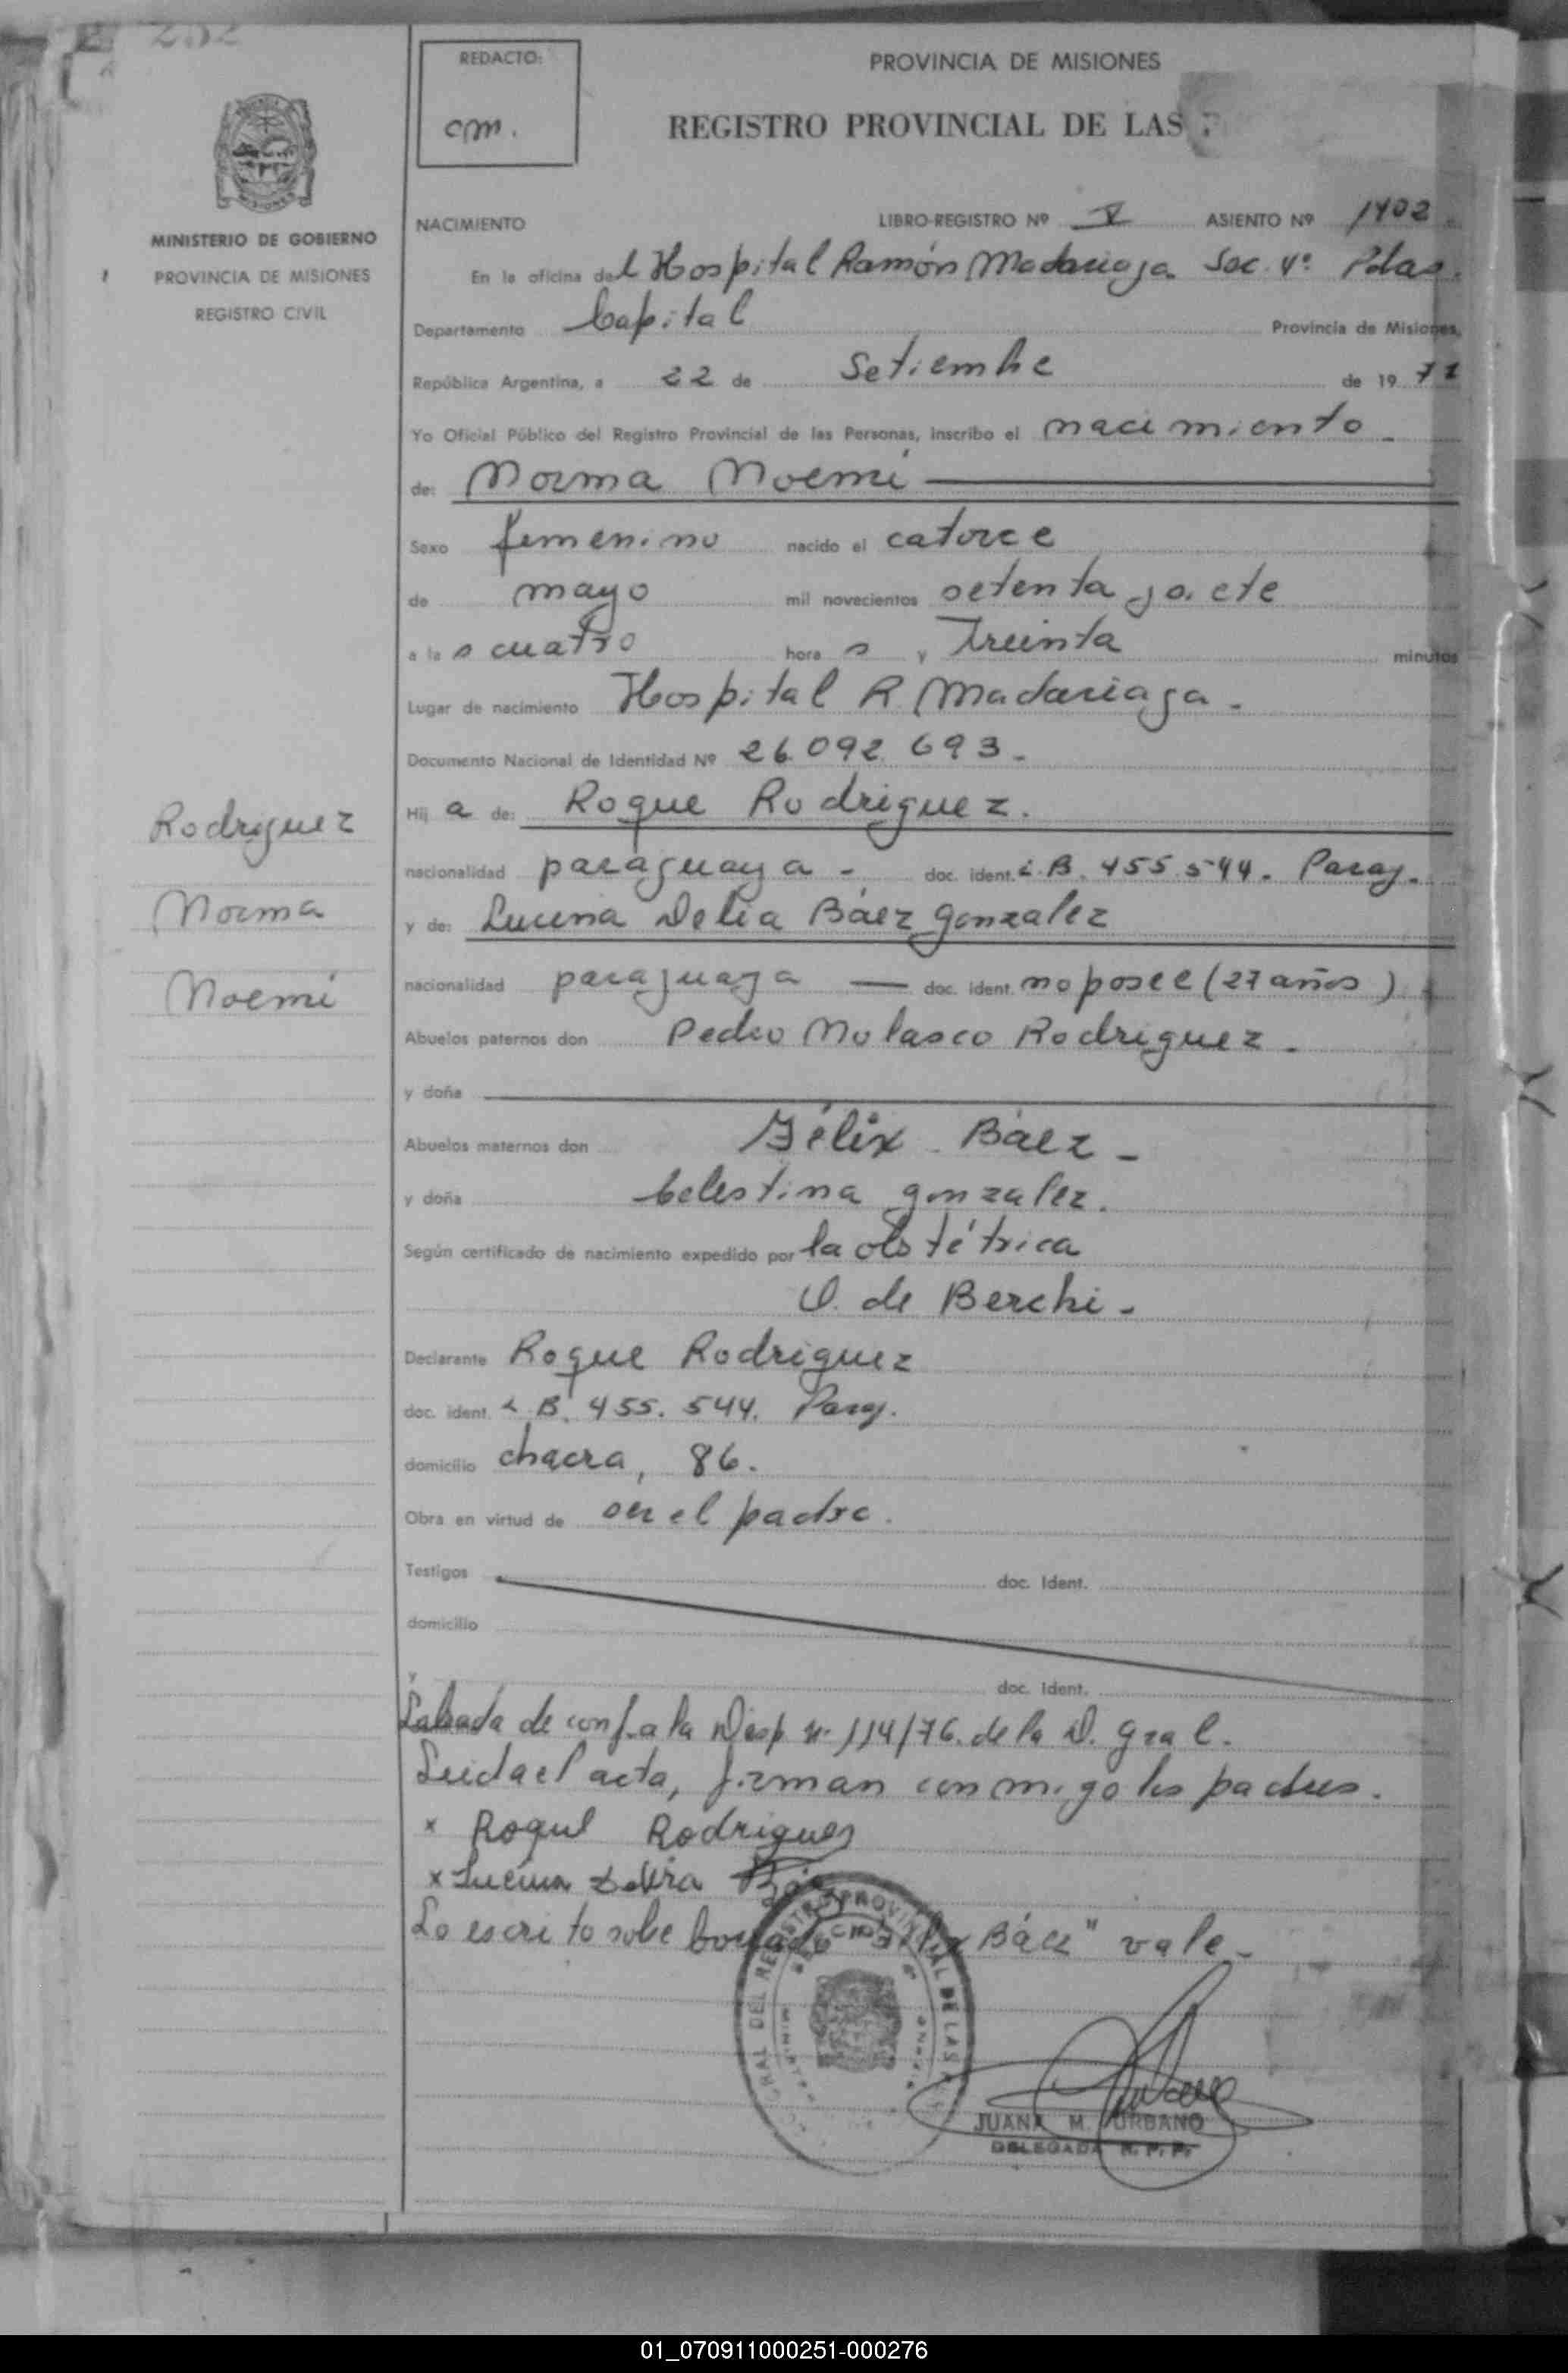 232
REDACTO:
cm.
PROVINCIA DE MISIONES
REGISTRO PROVINCIAL DE LAS
MINISTERIO DE GOBIERNO
PROVINCIA DE MISIONES
REGISTRO CIVIL
NACIMIENTO LIBRO-REGISTRO Nº V ASIENTO Nº 1402
En la oficina del Hospital Ramón Madariaga Sec. 4º Pdas.
Departamento Capital Provincia de Misiones,
República Argentina, a 22 de Setiembre de 19 77
Yo Oficial Público del Registro Provincial de las Personas, inscribo el nacimiento
de: Norma Noemí
Sexo femenino nacido el catorce
de mayo mil novecientos setenta y siete
a las cuatro hora s y treinta minutos
Lugar de nacimiento Hospital R. Madariaga.
Documento Nacional de Identidad Nº 26.092.693.
Hij a de: Roque Rodriguez.
nacionalidad paraguaya - doc. ident. L.B. 455.544. Parag.
y de: Lucina Delia Báez Gonzalez
nacionalidad paraguaya — doc. ident. no posee (27 años)
Abuelos paternos don Pedro Nolasco Rodriguez.
y doña
Abuelos maternos don Félix Báez -
y doña Celestina Gonzalez.
Según certificado de nacimiento expedido por la obstétrica
O. de Berchi.
Declarante Roque Rodriguez
doc. ident. L B. 455.544. Parag.
domicilio chacra, 86.
Obra en virtud de ser el padre.
Testigos doc. Ident.
domicilio
y doc. Ident.
Labrada de conf. a la Disp. nº 114/76. de la D. Gral.
Leida el acta, firman conmigo los padres.
x Roque Rodriguez
x Lucina Delia Báez
Lo escrito sobre borrado "Félix Báez" vale.
JUANA M. URBANO
DELEGADA R. P. P.
Rodriguez
Norma
Noemí
01_070911000251-000276